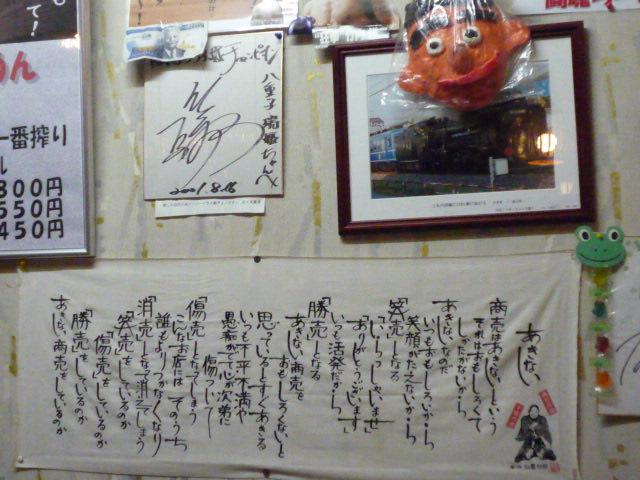 て!
うん
一番搾り
ル
800円
550円
450円
八重子
瑞姫ちゃんへ
2001.8.18
あきない
商売はあきないという
それはおもしろくて
しかたがないから
あきないなのだ
いつもおもしろいから
笑顔がたえないから
「笑売」となる
「いらっしゃいませ」
「ありがとうございます」
いつも活発だから
「勝売」となる
あきない商売を
おもしろくないと
思っているとすぐあきる
いつも不平不満や
愚痴がでて心が次第に
傷ついて
「傷売」となってしまう
こんなお店にはそのうち
誰もよりつかなくなり
「消売」となって消えてしまう
「笑売」をしているのか
「傷売」をしているのか
「勝売」をしているのか
あきない商売をしているのか